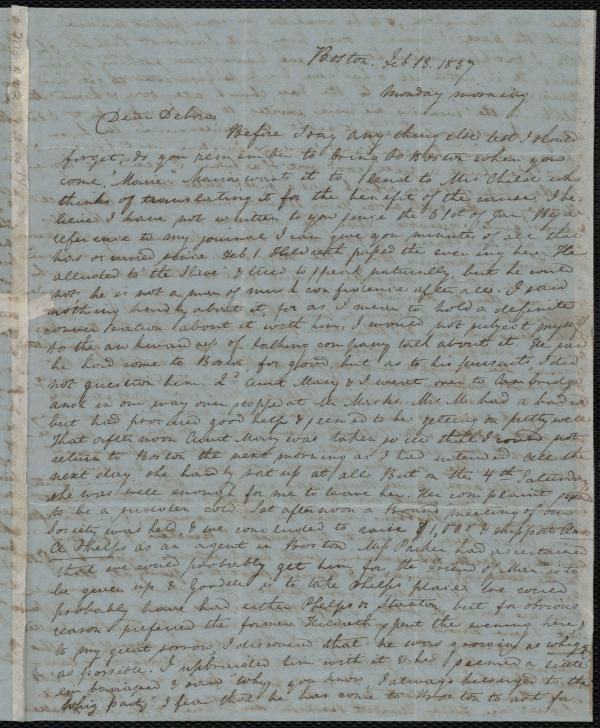 Boston. Feb 13. 1837
Monday morning
Dear Debora
Before I say any thing else lest I should
forget, do you remember to bring to Boston when you
come, "Marie" Maria wants it to lend to Mrs Child who
thinks of translating it for the benefit of the cause, I be
lieve I have not written to you since the 31st of Jan, By a
reference to my journal I can give you minutes of all that
has occurred since. Feb. 1. Hildreth passed the evening here. He
alluded to "the Slave" & tried to speak naturally, but he could
not, he is not a man of much confidence after all. I said
nothing hardly about it, for as I mean to hold a definite
conversation about it with him, I would not subject myself
to the awkwardness of talking company talk about it. He said
he had come to Boston, for good, but, as to his pursuits, I did
not question him. 2d. Aunt Mary & I went over to Cambridge
and in our way over stopped at Mr Marks. Mrs M. had a hard
but had procured good help & seemed to be getting on pretty well
That afternoon Aunt Mary was taken so ill that I could not
return to Boston the next morning as I had intended. All the
next day, she hardly sat up at all But on the 4th Saturday,
she was well enough for me to leave her. Her complaint
to be a sudden cold. Sat afternoon a Board meeting of our
Society was held, & we concluded to raise $1,000 & support Amos
A Phelps as an agent in Boston. Miss Parker had ascertained
that we could probably get him, for, the Friend of Man is to
be given up & Goodell is to take Phelps' place. We could
probably have had either Phelps or Stanton, but for obvious
reasons preferred the former. Hildreth spent the evening here,
to my great sorrow, I discovered that he was growing as whig
as possible. I upbraided him with it & he seemed a little
embarrassed & said "Why, you know I always belonged to the
Whig party," I fear that he has come to Boston to act for